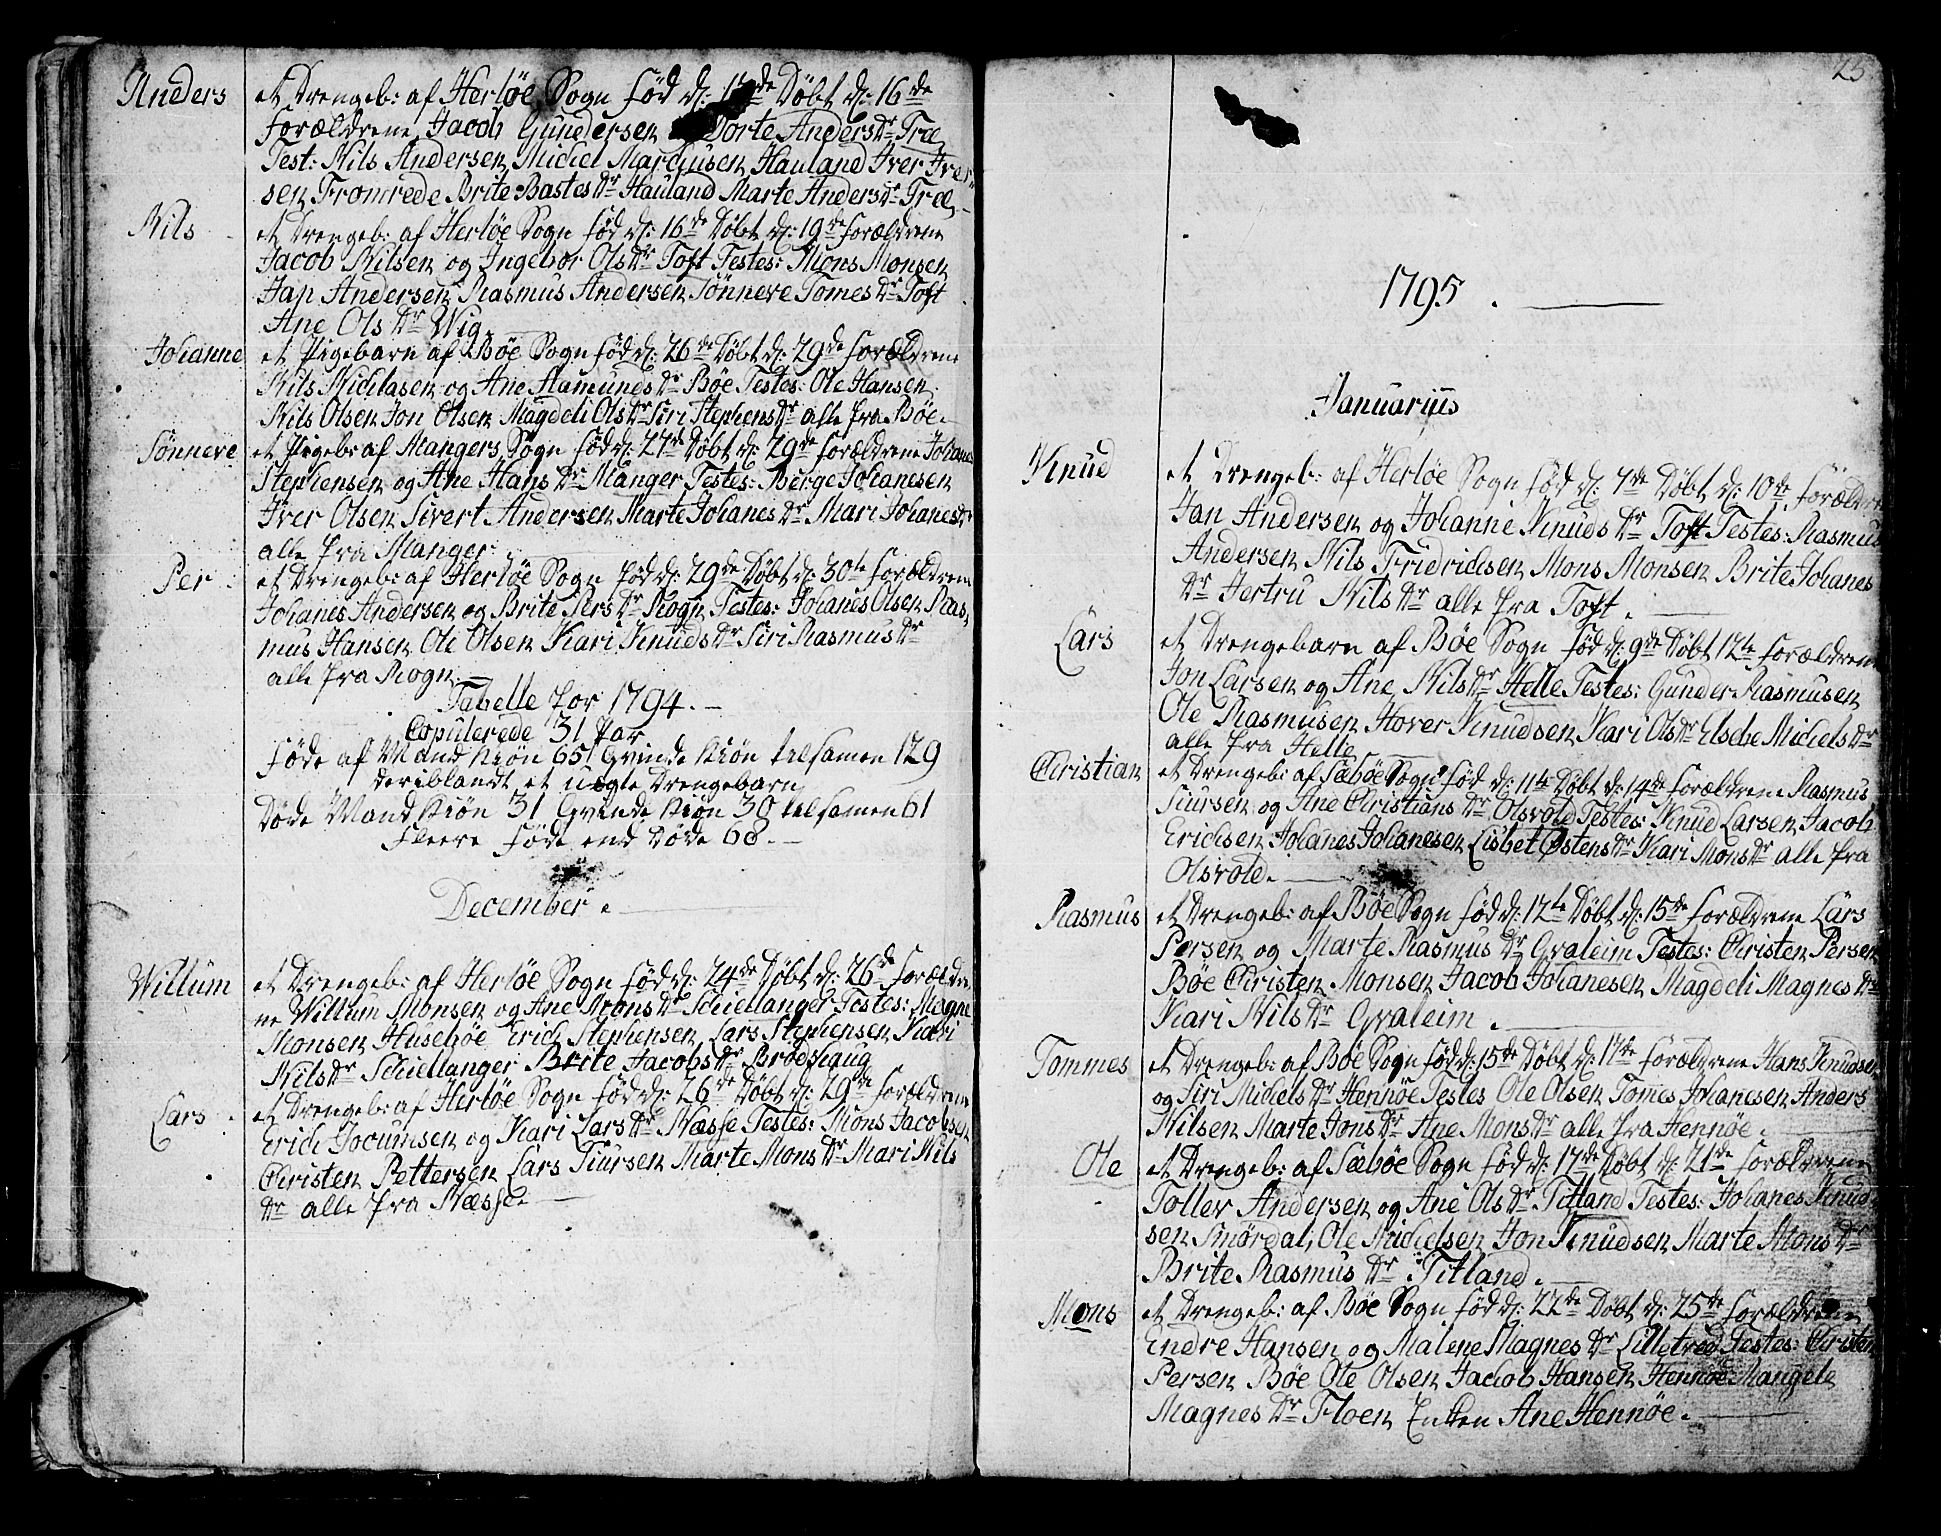 Anders et Drengeb: af Herlöe Sogn föd d: Döbt d: 16de
forældrene Jacob Gundersen Dorte Anders Dr Træ
Test: Nils Andersen Michel Marchusen Hauland Iver Iver-
sen Fromrede Brite Bastes Dr Hauland Marte Anders Dr Træ
Nils et Drengeb: af Herlöe Sogn föd d: 16de Döbt d: 19de forældrene
Jacob Nilsen og Ingebor Ols Dr Toft Testes: Mons Monsen
Jan Andersen Rasmus Andersen Sönneve Tomes Dr Toft
Ane Ols Dr Wig
Johanne et Pigebarn af Böe Sogn föd d: 26de Döbt d: 29de forældrene
Nils Nichlasen og Ane Aamunds Dr Böe Testes: Ole Hansen
Nils Olsen Jon Olsen Magdeli Ols Dr Siri Stephens Dr alle fra Böe
Sönneve et Pigeb: af Mangers Sogn föd d: 27de Döbt d: 29de forældrene Johanes
Stephensen og Ane Hans Dr Manger Testes: Börge Johanesen
Iver Olsen Sivert Andersen Marte Johanes Dr Mari Johanes Dr
alle fra Manger
Per et Drengeb: af Herlöe Sogn föd d: 29de Döbt d: 30te forældrene
Johanes Andersen og Brite Pers Dr Rogn Testes: Johanes Olsen Ras-
mus Hansen Ole Olsen Kari Knuds Dr Siri Rasmus Dr
alle fra Rogn
Tabelle for 1794.
Copulerede 31 Par
Föde af Mand Kiön 65 Qvinde Kiön tilsamen 129
deriblandt et uægte Drengebarn
Döde Mand Kiön 31 Qvinde Kiön 30 tilsamen 61
Fleere föde end Döde 68.
December.
Willum et Drengeb: af Herlöe Sogn föd d: 24de Döbt d: 26de foræld-
ne Willum Monsen og Ane Mons Dr Schiellanger Testes: Magne
Monsen Huseböe Erich Stephensen Lars Stephensen Kari
Nils Dr Schiellanger Brite Jacobs Dr Bröeshaug
Lars et Drengeb: af Herlöe Sogn föd d: 26de Döbt d: 29de forældrene
Erich Jocumsen og Kari Lars Dr Næsse Testes: Mons Jacobsen
Christen Pettersen Lars Siursen Marte Mons Dr Mari Nils
Dr alle fra Næsse
25
1795.
Januariüs
Knud et Drengeb: af Herlöe Sogn föd d: 7de Döbt d: 10de forældre
Jan Andersen og Johanne Knuds Dr Toft Testes: Rasmus
Andersen Nils Fridrichsen Mons Monsen Brite Johanes
Dr Jertru Nils Dr alle fra Toft.
Lars et Drengebarn af Böe Sogn föd d: 9de Döbt 12te forældrene
Jon Larsen og Ane Nils Dr Helle Testes: Gunder Rasmusen
Ole Rasmusen Hover Knudsen Kari Ols Dr Elsebe Michels Dr
alle fra Helle
Christian et Drengeb: af Sæböe Sogn föd d: 11te Döbt d: 14de forældrene Rasmus
Siursen og Ane Christians Dr Olsvold Testes: Knud Larsen Jacob
Erichsen Johanes Johanesen Lisbet Östens Dr Kari Mons Dr alle fra
Olsvold.
Rasmus et Drengeb: af Böe Sogn föd d: 12te Döbt d: 15de forældrene Lars
Persen og Marte Rasmus Dr Qvaleim Testes: Christen Persen
Böe Christen Monsen Jacob Johanesen Magdeli Magnes Dr
Kari Nils Dr Qvaleim.
Tommes et Drengeb: af Böe Sogn föd d: 15de Döbt d: 17de forældrene Hans Knudsen
og Siri Michels Dr Hennöe Testes Ole Olsen Tomes Johanesen Anders
Nilsen Marte Jons Dr Ane Mons Dr alle fra Hennöe.
Ole et Drengeb: af Sæböe Sogn föd d: 17de Döbt d: 21de forældrene
Tollev Andersen og Ane Ols Dr Titland Testes: Johanes Knud-
sen Smördal, Ole Michelsen Jon Knudsen Marte Mons Dr
Brite Rasmus Dr Titland.
Mons et Drengeb: af Böe Sogn föd d: 22de Döbt d: 25de forældrene
Endre Hansen og Malene Magnes Dr Lilletved Testes: Christen
Persen Böe Ole Olsen Jachob Hansen Hennöe Mangele
Magnes Dr Floen Enken Ane Hennöe.